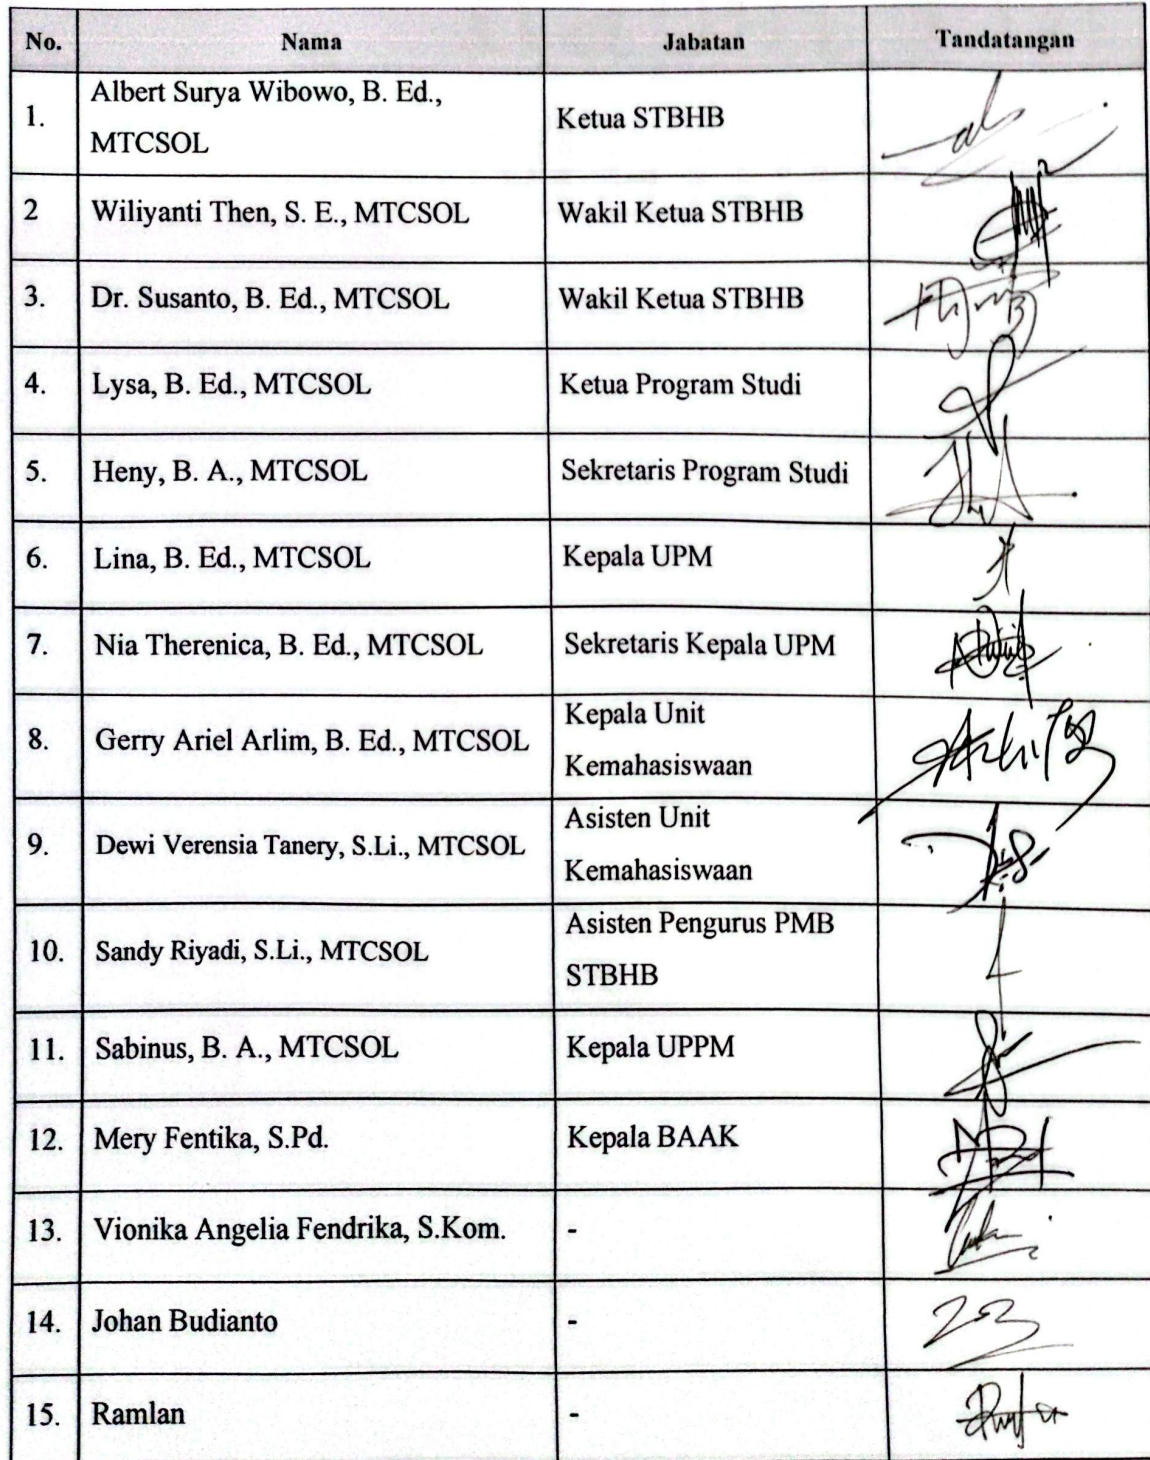 No. Nama Jabatan Tandatangan
1. Albert Surya Wibowo, B. Ed., MTCSOL Ketua STBHB
2 Wiliyanti Then, S. E., MTCSOL Wakil Ketua STBHB
3. Dr. Susanto, B. Ed., MTCSOL Wakil Ketua STBHB
4. Lysa, B. Ed., MTCSOL Ketua Program Studi
5. Heny, B. A., MTCSOL Sekretaris Program Studi
6. Lina, B. Ed., MTCSOL Kepala UPM
7. Nia Therenica, B. Ed., MTCSOL Sekretaris Kepala UPM
8. Gerry Ariel Arlim, B. Ed., MTCSOL Kepala Unit Kemahasiswaan
9. Dewi Verensia Tanery, S.Li., MTCSOL Asisten Unit Kemahasiswaan
10. Sandy Riyadi, S.Li., MTCSOL Asisten Pengurus PMB STBHB
11. Sabinus, B. A., MTCSOL Kepala UPPM
12. Mery Fentika, S.Pd. Kepala BAAK
13. Vionika Angelia Fendrika, S.Kom. -
14. Johan Budianto -
15. Ramlan -